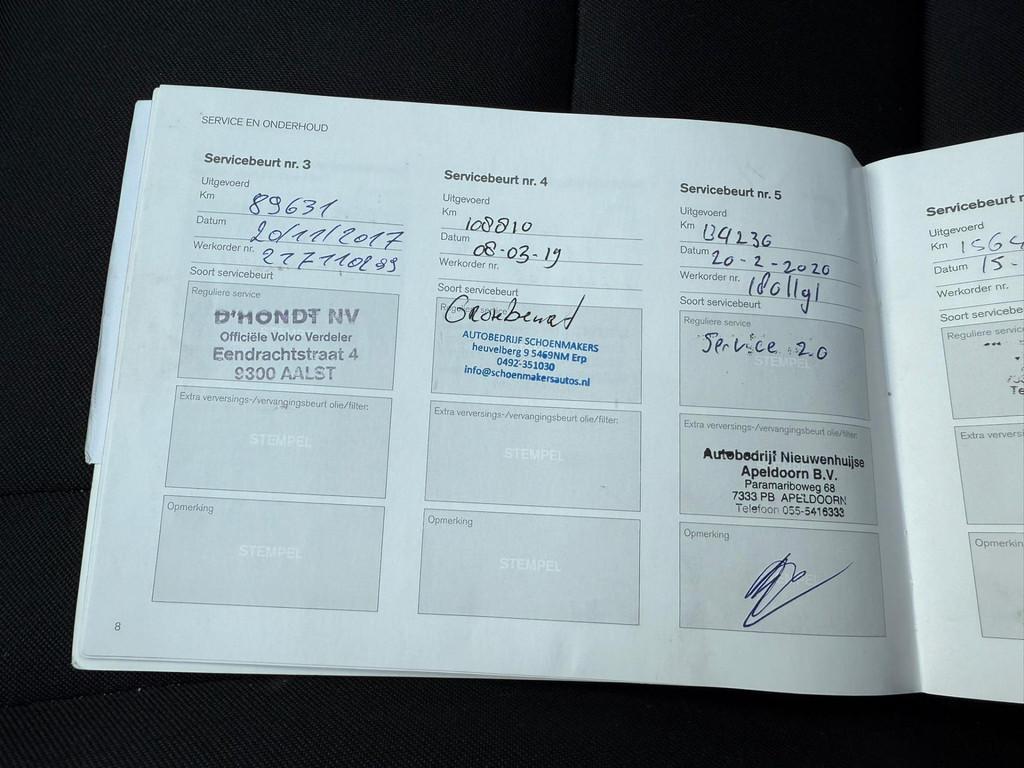 SERVICE EN ONDERHOUD
Servicebeurt nr. 3
Uitgevoerd
Km 89631
Datum 20/11/2017
Werkorder nr.
Soort servicebeurt
Reguliere service
D'HONDT NV
Officiële Volvo Verdeler
Eendrachtstraat 4
9300 AALST
Extra verversings-/vervangingsbeurt olie/filter:
STEMPEL
Opmerking
STEMPEL
8
Servicebeurt nr. 4
Uitgevoerd
Km 108810
Datum 08-03-19
Werkorder nr.
Soort servicebeurt
AUTOBEDRIJF SCHOENMAKERS
heuvelberg 9 5469NM Erp
0492-351030
info@schoenmakersautos.nl
Extra verversings-/vervangingsbeurt olie/filter:
STEMPEL
Opmerking
STEMPEL
Servicebeurt nr. 5
Uitgevoerd
Km 134236
Datum 20-2-2020
Werkorder nr.
Soort servicebeurt
Reguliere service
Service 2.0
STEMPEL
Extra verversings-/vervangingsbeurt olie/filter:
Autobedrijf Nieuwenhuijse
Apeldoorn B.V.
Paramariboweg 68
7333 PB APELDOORN
Telefoon 055-5416333
Opmerking
Servicebeurt
Uitgevoerd
Km 1564
Datum 15-
Werkorder nr.
Soort servicebe
Reguliere service
Te
Extra verversi
Opmerkin